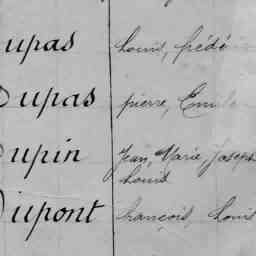 Dupas Louis, Frédé
Dupas pierre, Emile
Dupin Jean, Marie, Joseph
Louis
Dupont François, Louis